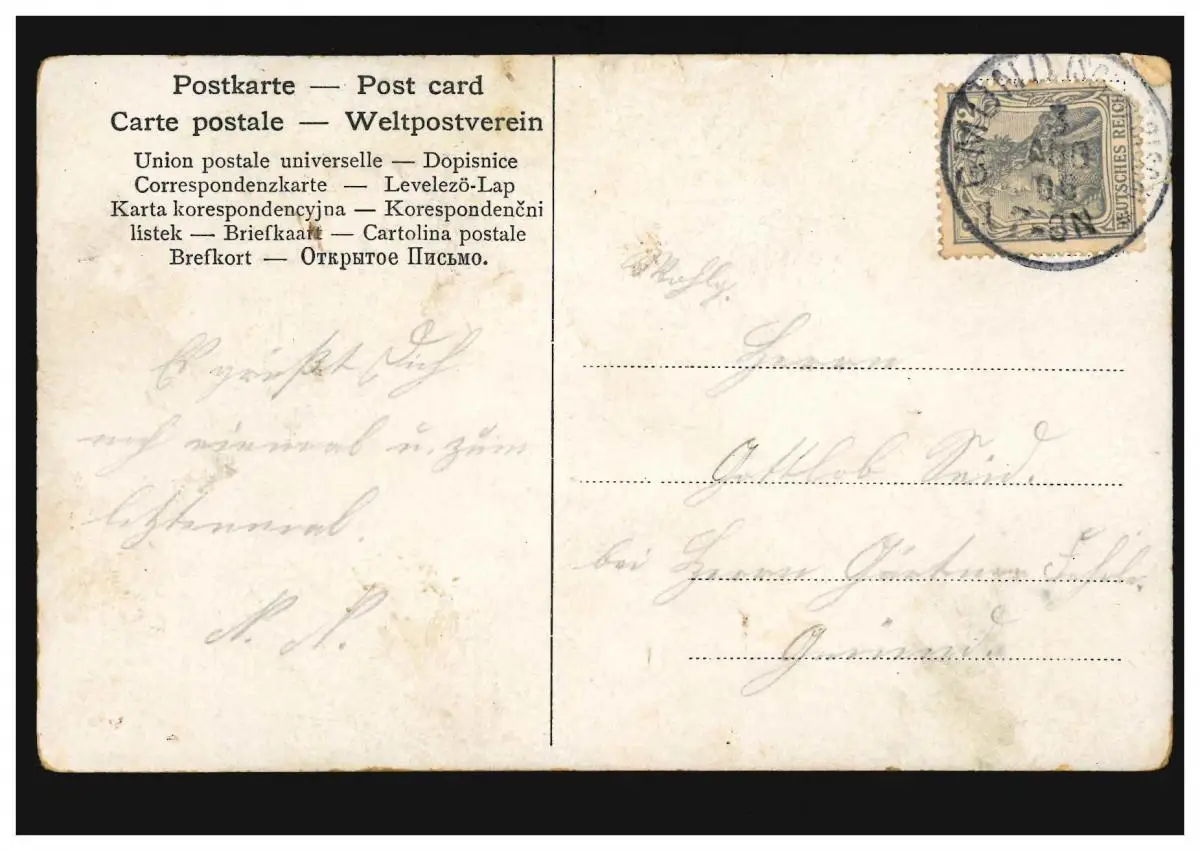 Postkarte — Post card
Carte postale — Weltpostverein
Union postale universelle — Dopisnice
Correspondenzkarte — Levelezö-Lap
Karta korespondencyjna — Korespondenčni
listek — Briefkaart — Cartolina postale
Brefkort — Открытое Письмо.
DEUTSCHES REICH
GMÜND
3
06
7-8N
Es grüßt Dich
noch einmal u. zum
letztenmal.
N. N.
Herrn
Gottlob
bei Herrn Gärtner
Gmünd.